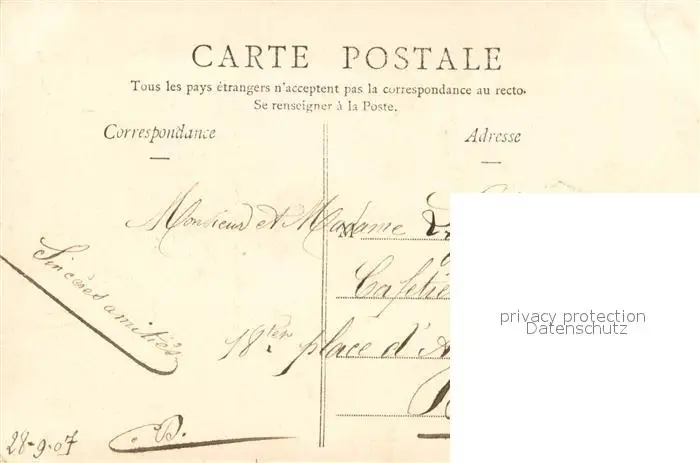 CARTE POSTALE
Tous les pays étrangers n'acceptent pas la correspondance au recto.
Se renseigner à la Poste.
Correspondance
Adresse
Monsieur et Madame
M
Cafetie
Sincères amitiés
18 ter place d'A
B.
28-9-07
privacy protection
Datenschutz